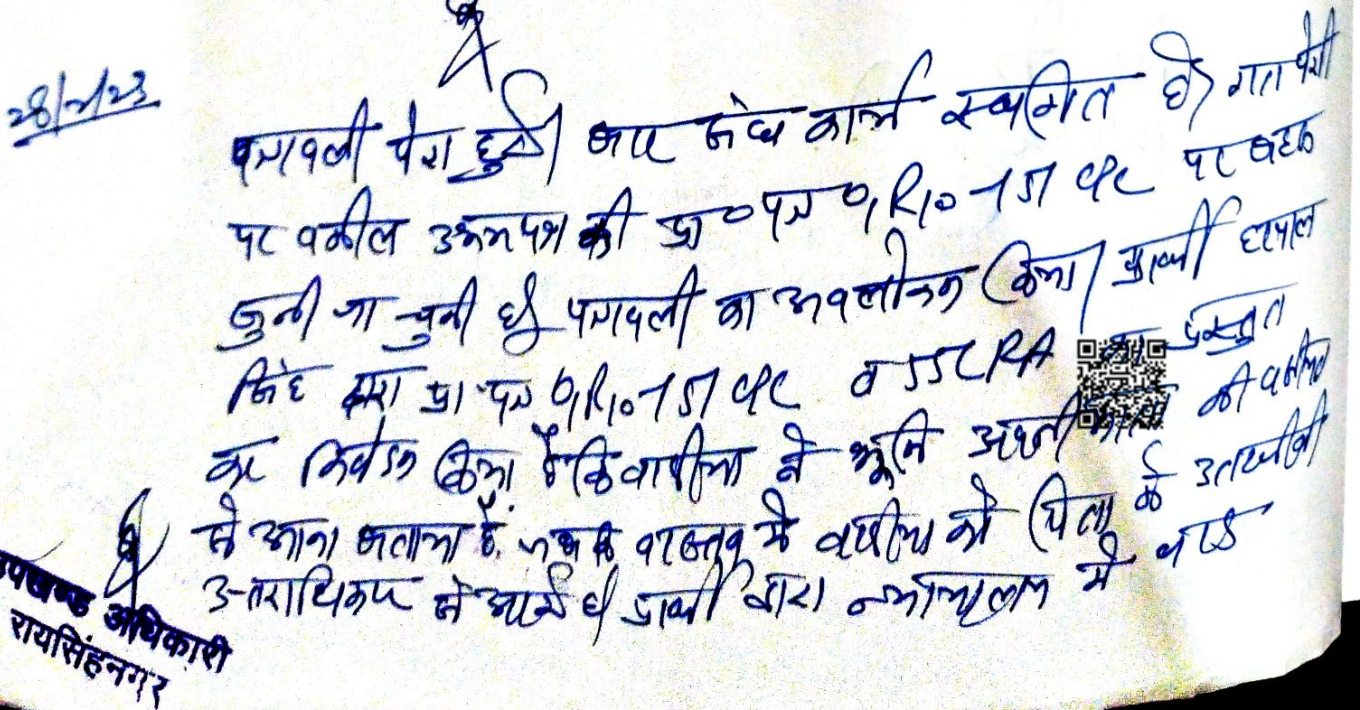 28/2/23
पत्रावली पेश हुई। बार संघ कार्य स्थगित है। गत पेशी
पर वकील उभयपक्ष की प्रा०पत्र O1R10-151 CPC पर बहस
सुनी जा चुकी है। पत्रावली का अवलोकन किया। प्रार्थी हरपाल
सिंह द्वारा प्रा-पत्र O1R10-151 CPC व प्रस्तुत
कर निवेदन किया है कि वादीया ने भूमि अपनी की वसीयत
से आना बताया है. में वादीया को पिता के
उत्तराधिकार से आई है। प्रार्थी द्वारा न्यायालय में वाद
उपखण्ड अधिकारी
रायसिंहनगर